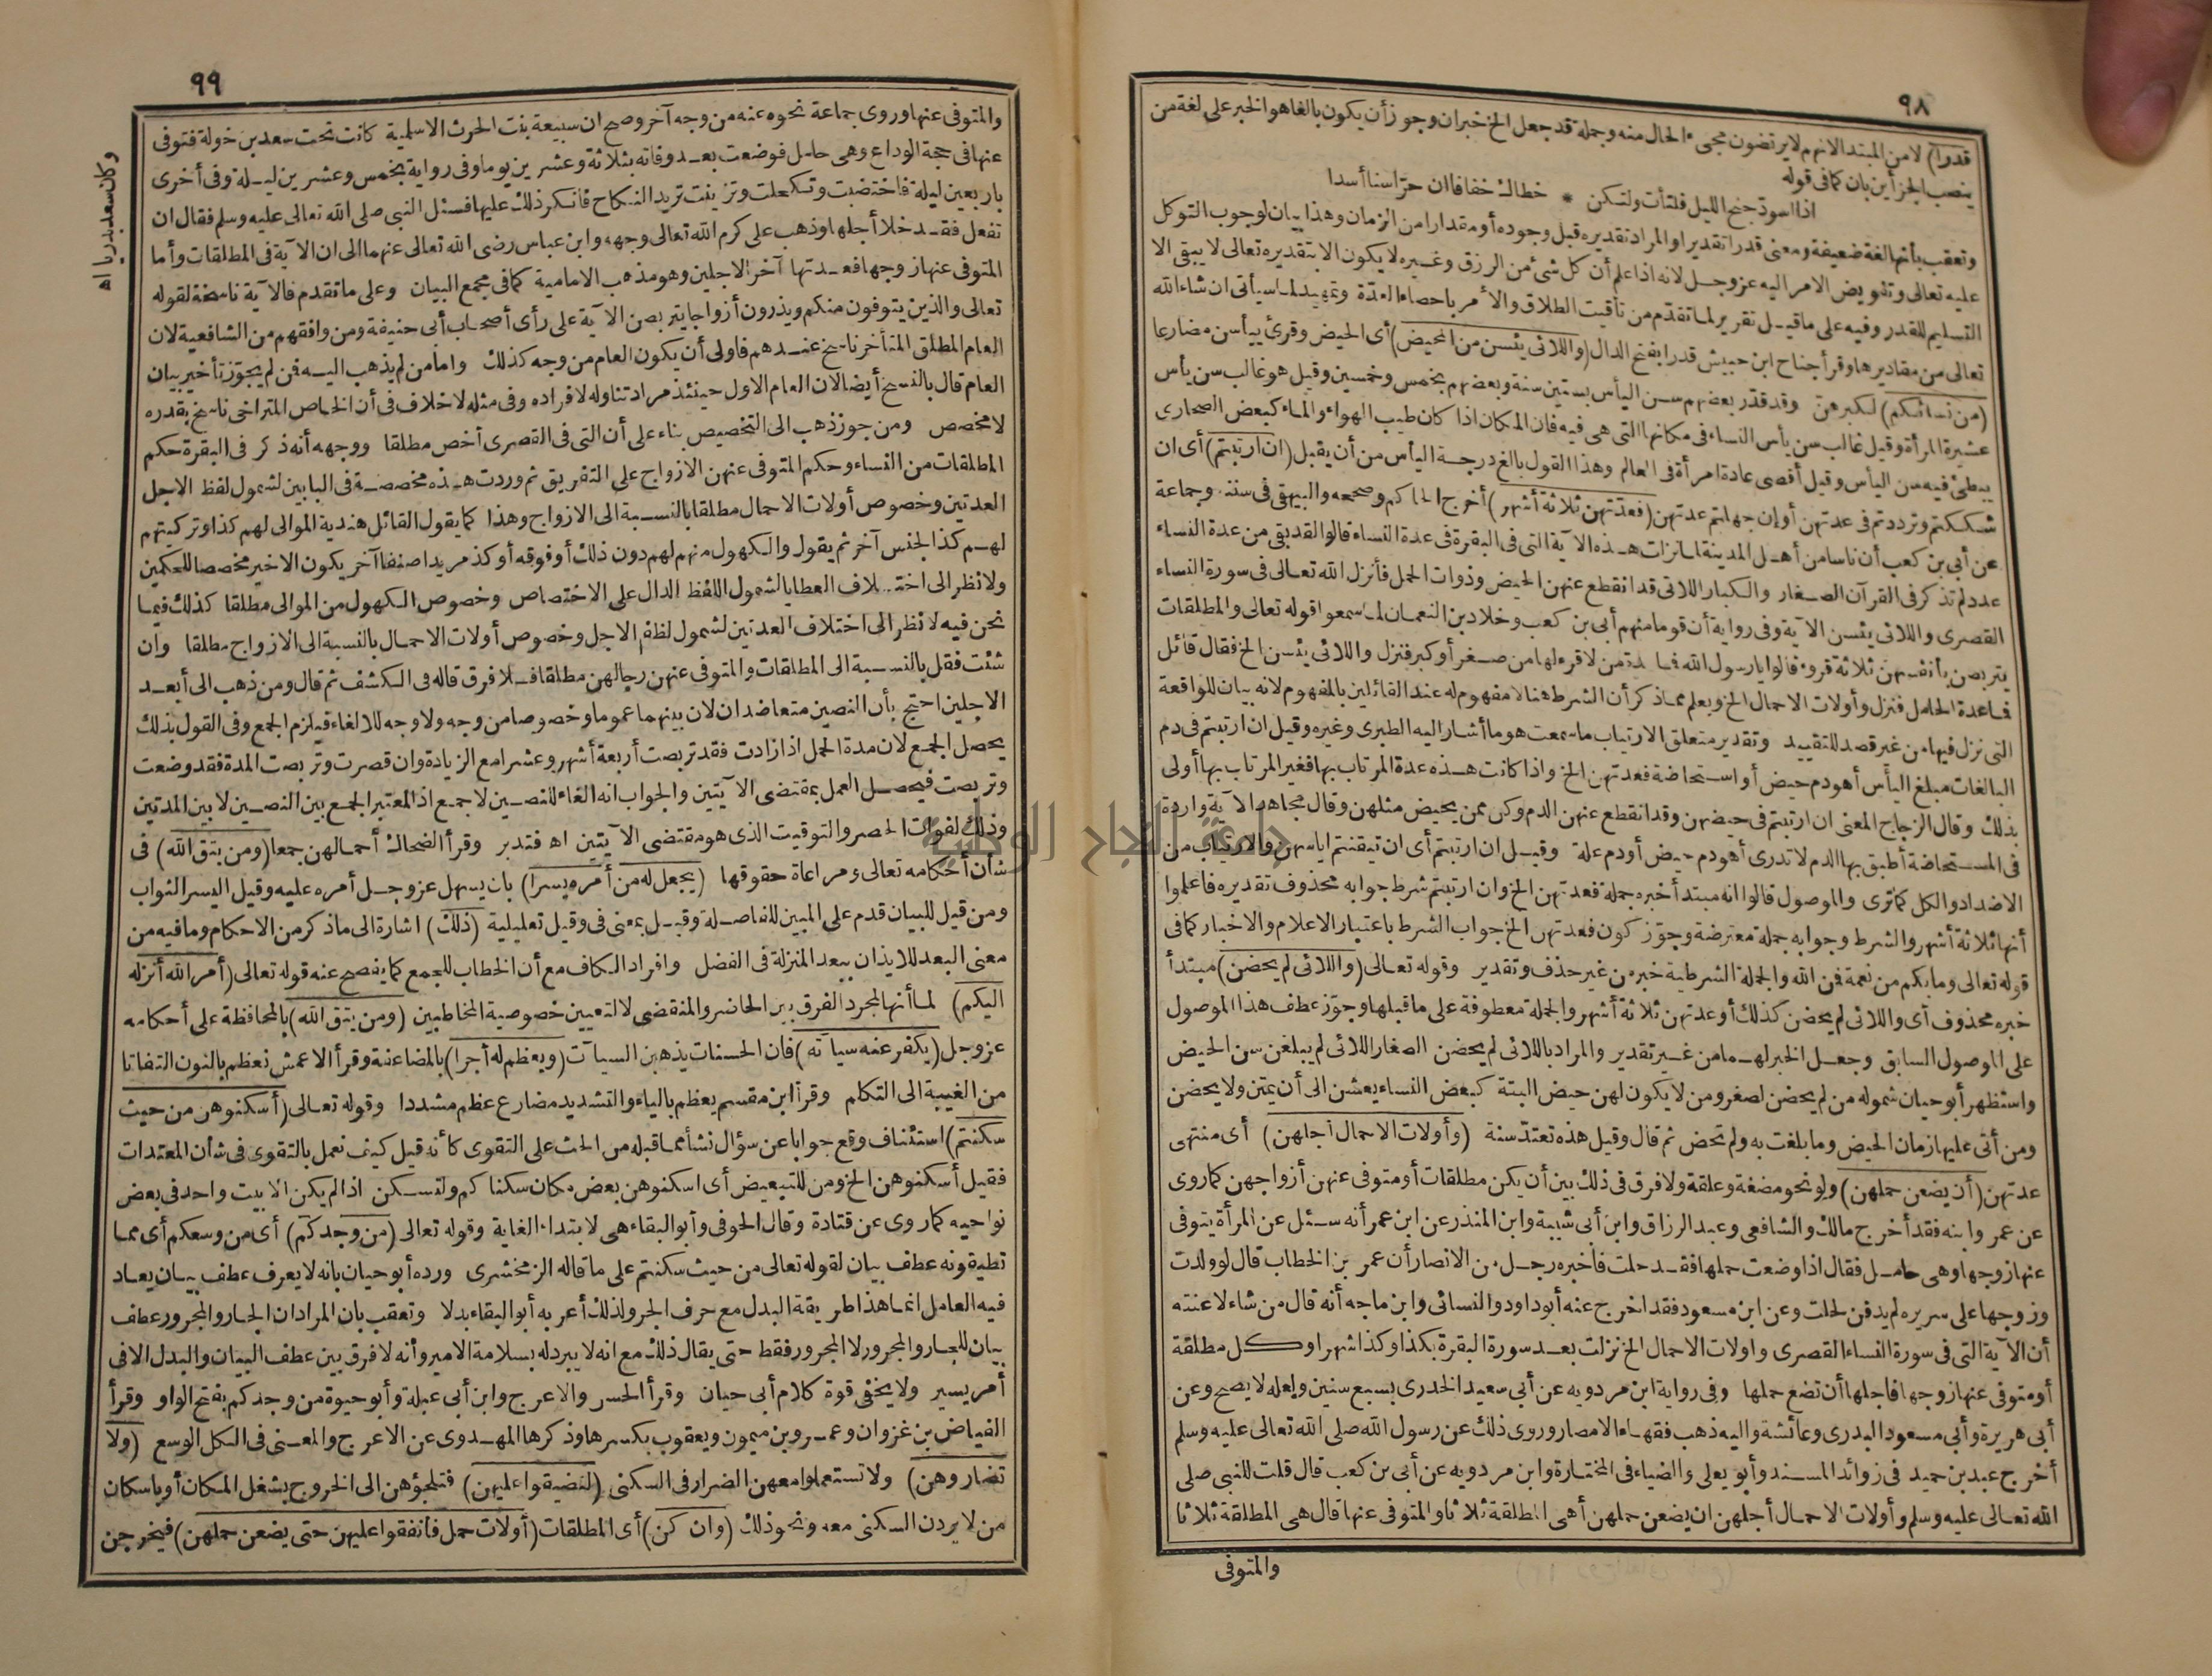 ٩٨
قدرا) لا من المبتدا لانهم لا يرتضون مجىء الحال منه وجملة قد جعل الخ خبر ان وجوز أن يكون بالغا هو الخبر على لغة من
ينصب الجزأين بان كما فى قوله
اذا اسود جنح الليل فلتأت ولتكن * خطاك خفافا ان حراسنا أسدا
وتعقب بأنها لغة ضعيفة ومعنى قدرا تقديرا والمراد تقديره قبل وجوده أو مقدارا من الزمان وهذا بيان لوجوب التوكل
عليه تعالى وتفويض الامر اليه عز وجل لانه اذا علم أن كل شئ من الرزق وغيره لا يكون الا بتقديره تعالى لا يبقى الا
التسليم للقدر وفيه على ما قيل تقرير لما تقدم من تأقيت الطلاق والأمر باحصاء العدة وتمهيد لما سيأتى ان شاء الله
تعالى من مقاديرها وقرأ جناح ابن حبيش قدرا بفتح الدال (واللائى يئسن من المحيض) أى الحيض وقرئ ييأسن مضارعا
(من نسائكم) لكبرهن وقد قدر بعضهم سن اليأس بستين سنة وبعضهم بخمس وخمسين وقيل هو غالب سن يأس
عشيرة المرأة وقيل غالب سن يأس النساء فى مكانها التى هى فيه فان المكان اذا كان طيب الهواء والماء كبعض الصحارى
يبطئ فيه سن اليأس وقيل أقصى عادة امرأة فى العالم وهذا القول بالغ درجة اليأس من أن يقبل (ان ارتبتم) أى ان
شككتم وترددتم فى عدتهن أو إن جهلتم عدتهن (فعدتهن ثلاثة أشهر) أخرج الحاكم وصححه والبيهقى فى سننه وجماعة
عن أبى بن كعب أن ناسا من أهل المدينة لما نزلت هذه الآية التى فى البقرة فى عدة النساء قالوا لقد بقى من عدة النساء
عدد لم تذكر فى القرآن الصغار والكبار اللاتى قد انقطع عنهن الحيض وذوات الحمل فأنزل الله تعالى فى سورة النساء
القصرى واللائى يئسن الآية وفى رواية أن قوما منهم أبى بن كعب وخلاد بن النعمان لما سمعوا قوله تعالى والمطلقات
يتربصن بأنفسهن ثلاثة قروء قالوا يا رسول الله فما عدة من لا قرء لها من صغر أو كبر فنزل واللائى يئسن الخ فقال قائل
فما عدة الحامل فنزل وأولات الاحمال الخ ويعلم مما ذكر أن الشرط هنا لا مفهوم له عند القائلين بالمفهوم لانه بيان للواقعة
التى نزل فيها من غير قصد للتقييد وتقدير متعلق الارتياب ما سمعت هو ما أشار اليه الطبرى وغيره وقيل ان ارتبتم فى دم
البالغات مبلغ اليأس أهو دم حيض أو استحاضة فعدتهن الخ واذا كانت هذه عدة المرتاب بها فغير المرتاب بها أولى
بذلك وقال الزجاج المعنى ان ارتبتم فى حيضهن وقد انقطع عنهن الدم وكن ممن يحيض مثلهن وقال مجاهد الآية واردة
فى المستحاضة أطبق بها الدم لا تدرى أهو دم حيض أو دم علة وقيل ان ارتبتم أى ان تيقنتم اياسهن والارتياب من
الاضداد والكل كما ترى والموصول قالوا انه مبتدأ خبره جملة فعدتهن الخ وان ارتبتم شرط جوابه محذوف تقديره فاعلموا
أنها ثلاثة أشهر والشرط وجوابه جملة معترضة وجوز كون فعدتهن الخ جواب الشرط باعتبار الاعلام والاخبار كما فى
قوله تعالى وما بكم من نعمة فمن الله والجملة الشرطية خبر من غير حذف وتقدير وقوله تعالى (واللائى لم يحضن) مبتدأ
خبره محذوف أى واللائى لم يحضن كذلك أو عدتهن ثلاثة أشهر والجملة معطوفة على ما قبلها وجوز عطف هذا الموصول
على الموصول السابق وجعل الخبر لهما من غير تقدير والمراد باللائى لم يحضن الصغار اللائى لم يبلغن سن الحيض
واستظهر أبو حيان شموله من لم يحضن لصغر ومن لا يكون لهن حيض البتة كبعض النساء يعشن الى أن يمتن ولا يحضن
ومن أتى عليها زمان الحيض وما بلغت به ولم تحض ثم قال وقيل هذه تعتد سنة (وأولات الاحمال أجلهن) أى منتهى
عدتهن (أن يضعن حملهن) ولو نحو مضغة وعلقة ولا فرق فى ذلك بين أن يكن مطلقات أو متوفى عنهن أزواجهن كما روى
عن عمر وابنه فقد أخرج مالك والشافعى وعبد الرزاق وابن أبى شيبة وابن المنذر عن ابن عمر أنه سئل عن المرأة يتوفى
عنها زوجها وهى حامل فقال اذا وضعت حملها فقد حلت فأخبره رجل من الانصار أن عمر بن الخطاب قال لو ولدت
وزوجها على سريره لم يدفن لحلت وعن ابن مسعود فقد اخرج عنه أبو داود والنسائى وابن ماجه أنه قال من شاء لاعنته
أن الآية التى فى سورة النساء القصرى واولات الاحمال الخ نزلت بعد سورة البقرة بكذا وكذا شهرا وكل مطلقة
أو متوفى عنها زوجها فاجلها أن تضع حملها وفى رواية ابن مردويه عن أبى سعيد الخدرى بسبع سنين ولعله لا يصح وعن
أبى هريرة وأبى مسعود البدرى وعائشة واليه ذهب فقهاء الامصار وروى ذلك عن رسول الله صلى الله تعالى عليه وسلم
أخرج عبد بن حميد فى زوائد المسند وأبو يعلى والضياء فى المختارة وابن مردويه عن أبى بن كعب قال قلت للنبى صلى
الله تعالى عليه وسلم وأولات الاحمال أجلهن ان يضعن حملهن أهى المطلقة ثلاثا والمتوفى عنها قال هى المطلقة ثلاثا
والمتوفى
٩٩
والمتوفى عنها وروى جماعة نحوه عنه من وجه آخر وصح ان سبيعة بنت الحرث الاسلمية كانت تحت سعد بن خولة فتوفى
عنها فى حجة الوداع وهى حامل فوضعت بعد وفاته بثلاثة وعشرين يوما وفى رواية بخمس وعشرين ليلة وفى أخرى
باربعين ليلة فاختضبت وتكحلت وتزينت تريد النكاح فانكر ذلك عليها فسئل النبى صلى الله تعالى عليه وسلم فقال ان
تفعل فقد خلا أجلها وذهب على كرم الله تعالى وجهه وابن عباس رضى الله تعالى عنهما الى ان الآية فى المطلقات وأما
المتوفى عنها زوجها فعدتها آخر الاجلين وهو مذهب الامامية كما فى مجمع البيان وعلى ما تقدم فالآية ناسخة لقوله
تعالى والذين يتوفون منكم ويذرون أزواجا يتربصن الآية على رأى أصحاب أبى حنيفة ومن وافقهم من الشافعية لان
العام المطلق المتأخر ناسخ عندهم فاولى أن يكون العام من وجه كذلك واما من لم يذهب اليه فمن لم يجوز تأخير بيان
العام قال بالنسخ أيضا لان العام الاول حينئذ مراد تناوله لافراده وفى مثله لا خلاف فى أن الخاص المتراخى ناسخ بقدره
لا مخصص ومن جوز ذهب الى التخصيص بناء على أن التى فى القصرى أخص مطلقا ووجهه أنه ذكر فى البقرة حكم
المطلقات من النساء وحكم المتوفى عنهن الازواج على التفريق ثم وردت هذه مخصصة فى البابين لشمول لفظ الاجل
العدتين وخصوص أولات الاحمال مطلقا بالنسبة الى الازواج وهذا كما يقول القائل هندية الموالى لهم كذا وتركيتهم
لهم كذا لجنس آخر ثم يقول والكهول منهم لهم دون ذلك أو فوقه أو كذا مريدا صنفا آخر يكون الاخير مخصصا للحكمين
ولا نظر الى اختلاف العطايا لشمول اللفظ الدال على الاختصاص وخصوص الكهول من الموالى مطلقا كذلك فيما
نحن فيه لا نظر الى اختلاف العدتين لشمول لفظ الاجل وخصوص أولات الاحمال بالنسبة الى الازواج مطلقا وان
شئت فقل بالنسبة الى المطلقات والمتوفى عنهن رجالهن مطلقا فلا فرق قاله فى الكشف ثم قال ومن ذهب الى أبعد
الاجلين احتج بأن النصين متعاضدان لان بينهما عموما وخصوصا من وجه ولا وجه للالغاء فيلزم الجمع وفى القول بذلك
يحصل الجمع لان مدة الحمل اذا زادت فقد تربصت أربعة أشهر وعشرا مع الزيادة وان قصرت وتربصت المدة فقد وضعت
وتربصت فيحصل العمل بمقتضى الآيتين والجواب انه الغاء للنصين لا جمع اذ المعتبر الجمع بين النصين لا بين المدتين
وذلك لفوات الحصر والتوقيت الذى هو مقتضى الآيتين اه فتدبر وقرأ الضحاك أحمالهن جمعا (ومن يتق الله) فى
شأن أحكامه تعالى ومراعاة حقوقها (يجعل له من أمره يسرا) بان يسهل عز وجل أمره عليه وقيل اليسر الثواب
ومن قيل للبيان قدم على المبين للفاصلة وقيل بمعنى فى وقيل تعليلية (ذلك) اشارة الى ما ذكر من الاحكام وما فيه من
معنى البعد للايذان ببعد المنزلة فى الفضل وافراد الكاف مع أن الخطاب للجمع كما يفصح عنه قوله تعالى (أمر الله أنزله
اليكم) لما أنها لمجرد الفرق بين الحاضر والمنقضى لا لتعيين خصوصية المخاطبين (ومن يتق الله) بالمحافظة على أحكامه
عز وجل (يكفر عنه سيآته) فان الحسنات يذهبن السيآت (ويعظم له أجرا) بالمضاعفة وقرأ الاعمش نعظم بالنون التفاتا
من الغيبة الى التكلم وقرأ ابن مقسم يعظم بالياء والتشديد مضارع عظم مشددا وقوله تعالى (أسكنوهن من حيث
سكنتم) استئناف وقع جوابا عن سؤال نشأ مما قبله من الحث على التقوى كأنه قيل كيف نعمل بالتقوى فى شأن المعتدات
فقيل أسكنوهن الخ ومن للتبعيض أى اسكنوهن بعض مكان سكناكم ولتسكن اذا لم يكن الا بيت واحد فى بعض
نواحيه كما روى عن قتادة وقال الحوفى وأبو البقاء هى لابتداء الغاية وقوله تعالى (من وجدكم) أى من وسعكم أى مما
تطيقونه عطف بيان لقوله تعالى من حيث سكنتم على ما قاله الزمخشرى ورده أبو حيان بانه لا يعرف عطف بيان يعاد
فيه العامل انما هذا طريقة البدل مع حرف الجر ولذلك أعربه أبو البقاء بدلا وتعقب بان المراد ان الجار والمجرور عطف
بيان للجار والمجرور لا المجرور فقط حتى يقال ذلك مع انه لا يبرد له بسلامة الامير وأنه لا فرق بين عطف البيان والبدل الا فى
أمر يسير ولا يخفى قوة كلام أبى حيان وقرأ الحسن والاعرج وابن أبى عبلة وأبو حيوة من وجدكم بفتح الواو وقرأ
الفياض بن غزوان وعمرو بن ميمون ويعقوب بكسرها وذكرها المهدوى عن الاعرج والمعنى فى الكل الوسع (ولا
تضاروهن) ولا تستعملوا معهن الضرار فى السكنى (لتضيقوا عليهن) فتلجؤهن الى الخروج بشغل المكان أو باسكان
من لا يردن السكنى معه ونحو ذلك (وان كن) أى المطلقات (أولات حمل فانفقوا عليهن حتى يضعن حملهن) فيخرجن
وكان سعد بدريا اه
جامعة النجاح الوطنية